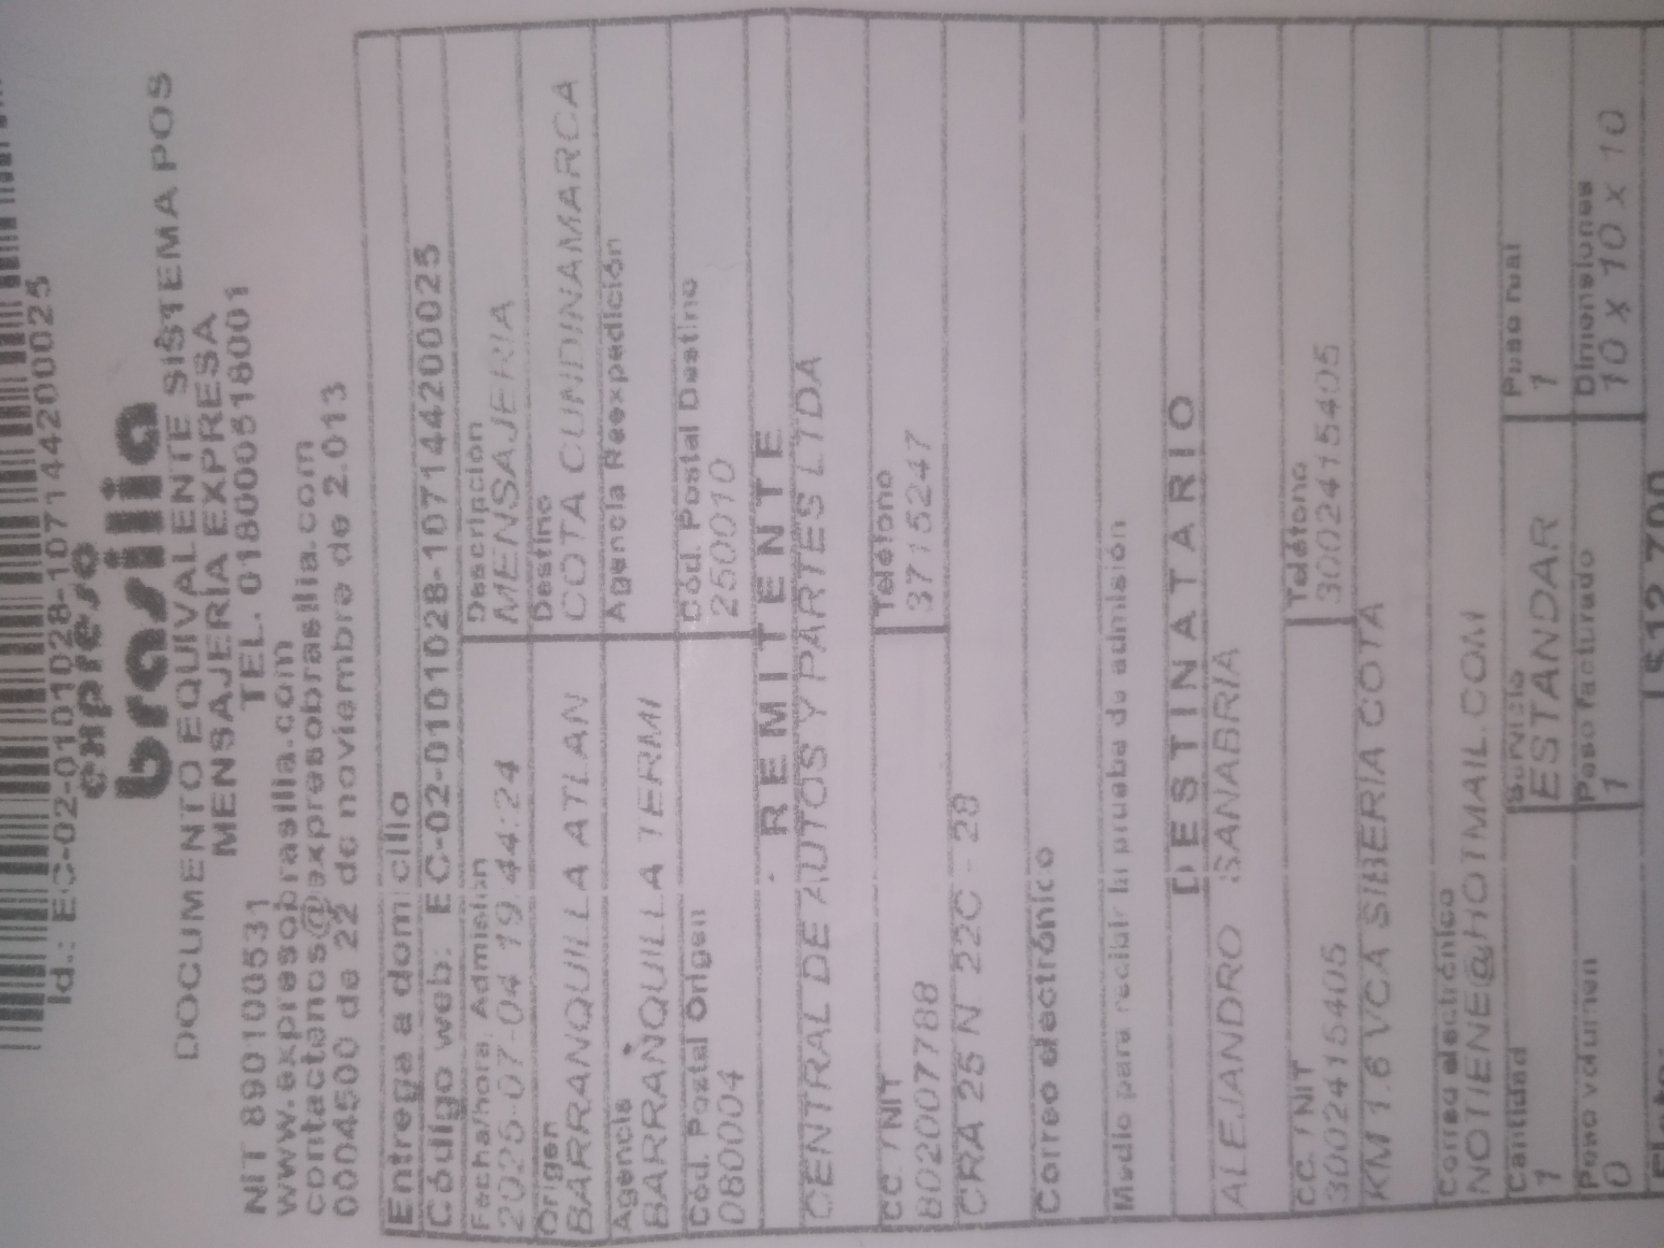 Id.: EC-02-0101028-1071442000025
expreso
brasilia
DOCUMENTO EQUIVALENTE SISTEMA POS
MENSAJERÍA EXPRESA
NIT 890100531 TEL. 018000518001
www.expresobrasilia.com
contactenos@expresobrasilia.com
0004500 de 22 de noviembre de 2.013
Entrega a domicilio
Código web: EC-02-0101028-1071442000025
Fecha/hora Admisión Descripción
2025-07-04 19:44:24 MENSAJERIA
Origen Destino
BARRANQUILLA ATLAN COTA CUNDINAMARCA
Agencia Agencia Reexpedición
BARRANQUILLA TERMI
Cód. Postal Origen Cód. Postal Destino
080004 250010
REMITENTE
CENTRAL DE AUTOS Y PARTES LTDA
CC. / NIT Teléfono
802007788 3715247
CRA 25 N 22C - 28
Correo electrónico
Medio para recibir la prueba de admisión
DESTINATARIO
ALEJANDRO SANABRIA
CC. / NIT Teléfono
3002415405 3002415405
KM 1.6 VCA SIBERIA COTA
Correo electrónico
NOTIENE@HOTMAIL.COM
Cantidad Servicio Peso real
1 ESTANDAR 1
Peso volumen Peso facturado Dimensiones
0 1 10 x 10 x 10
Flete: $12.700